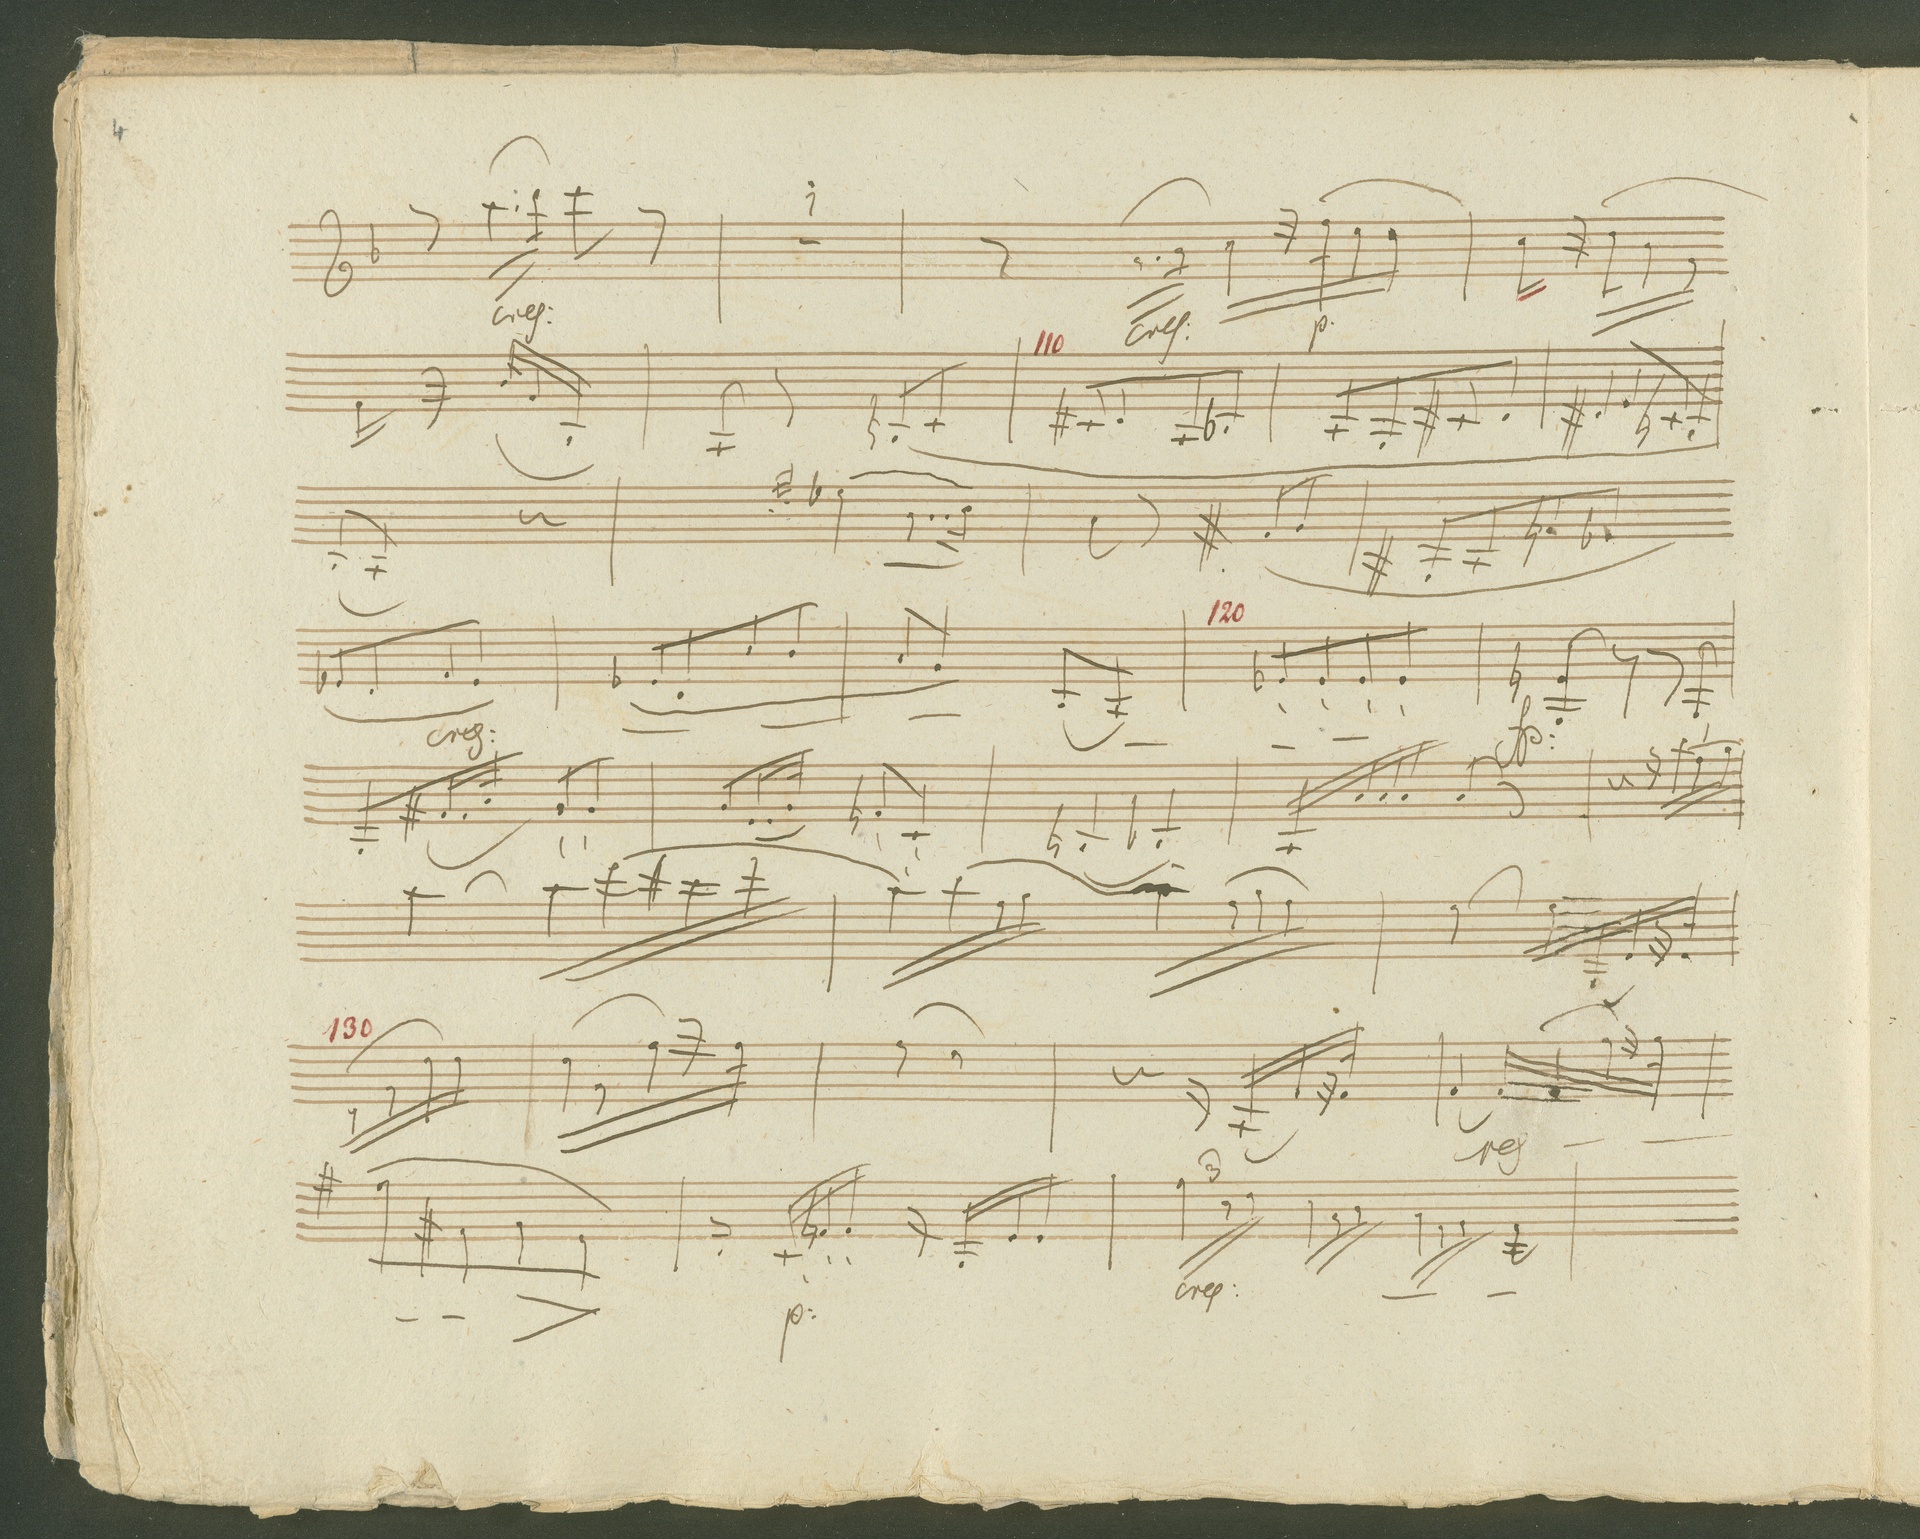 4
1
cres: cres: p.
110
120
cres: fp:
130
cres
3
p: cres: